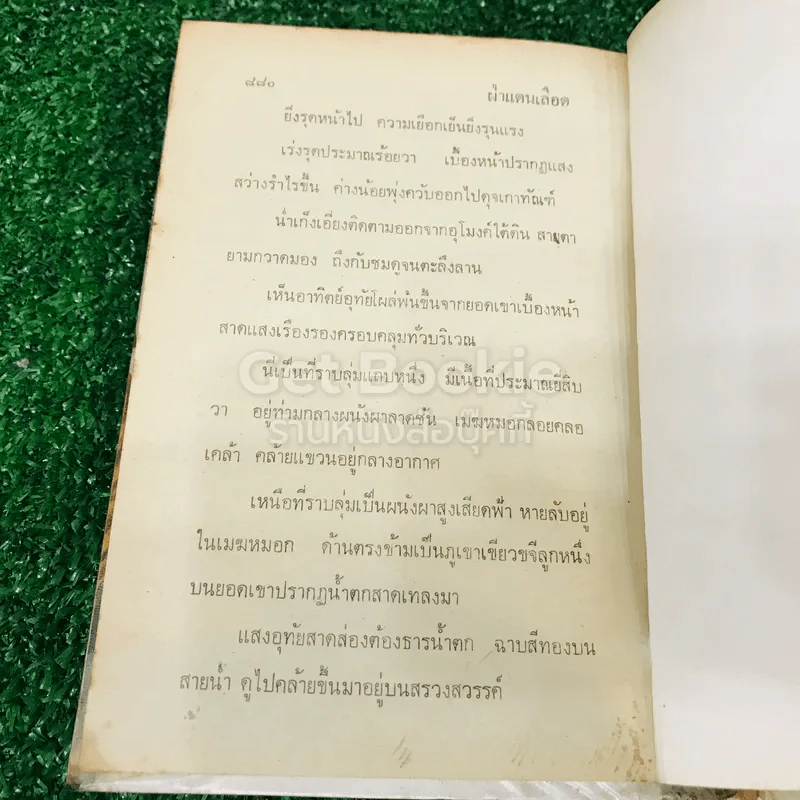 ๘๘๐ ผ่าแดนเลือด
ยิ่งรุดหน้าไป ความเยือกเย็นยิ่งรุนแรง
เร่งรุดประมาณร้อยวา เบื้องหน้าปรากฏแสง
สว่างรำไรขึ้น ค่างน้อยพุ่งควับออกไปดุจเกาทัณฑ์
น่ำเก็งเอี่ยงติดตามออกจากอุโมงค์ใต้ดิน สายตา
ยามกวาดมอง ถึงกับชมดูจนตะลึงลาน
เห็นอาทิตย์อุทัยโผล่พ้นขึ้นจากยอดเขาเบื้องหน้า
สาดแสงเรืองรองครอบคลุมทั่วบริเวณ
นี่เป็นที่ราบลุ่มแถบหนึ่ง มีเนื้อที่ประมาณยี่สิบ
วา อยู่ท่ามกลางผนังผาลาดชัน เมฆหมอกลอยคลอ
เคล้า คล้ายแขวนอยู่กลางอากาศ
เหนือที่ราบลุ่มเป็นผนังผาสูงเสียดฟ้า หายลับอยู่
ในเมฆหมอก ด้านตรงข้ามเป็นภูเขาเขียวขจีลูกหนึ่ง
บนยอดเขาปรากฏน้ำตกสาดเทลงมา
แสงอุทัยสาดส่องต้องธารน้ำตก ฉาบสีทองบน
สายน้ำ ดูไปคล้ายขึ้นมาอยู่บนสรวงสวรรค์
Get Bookie
ร้านหนังสือบุ๊คกี้